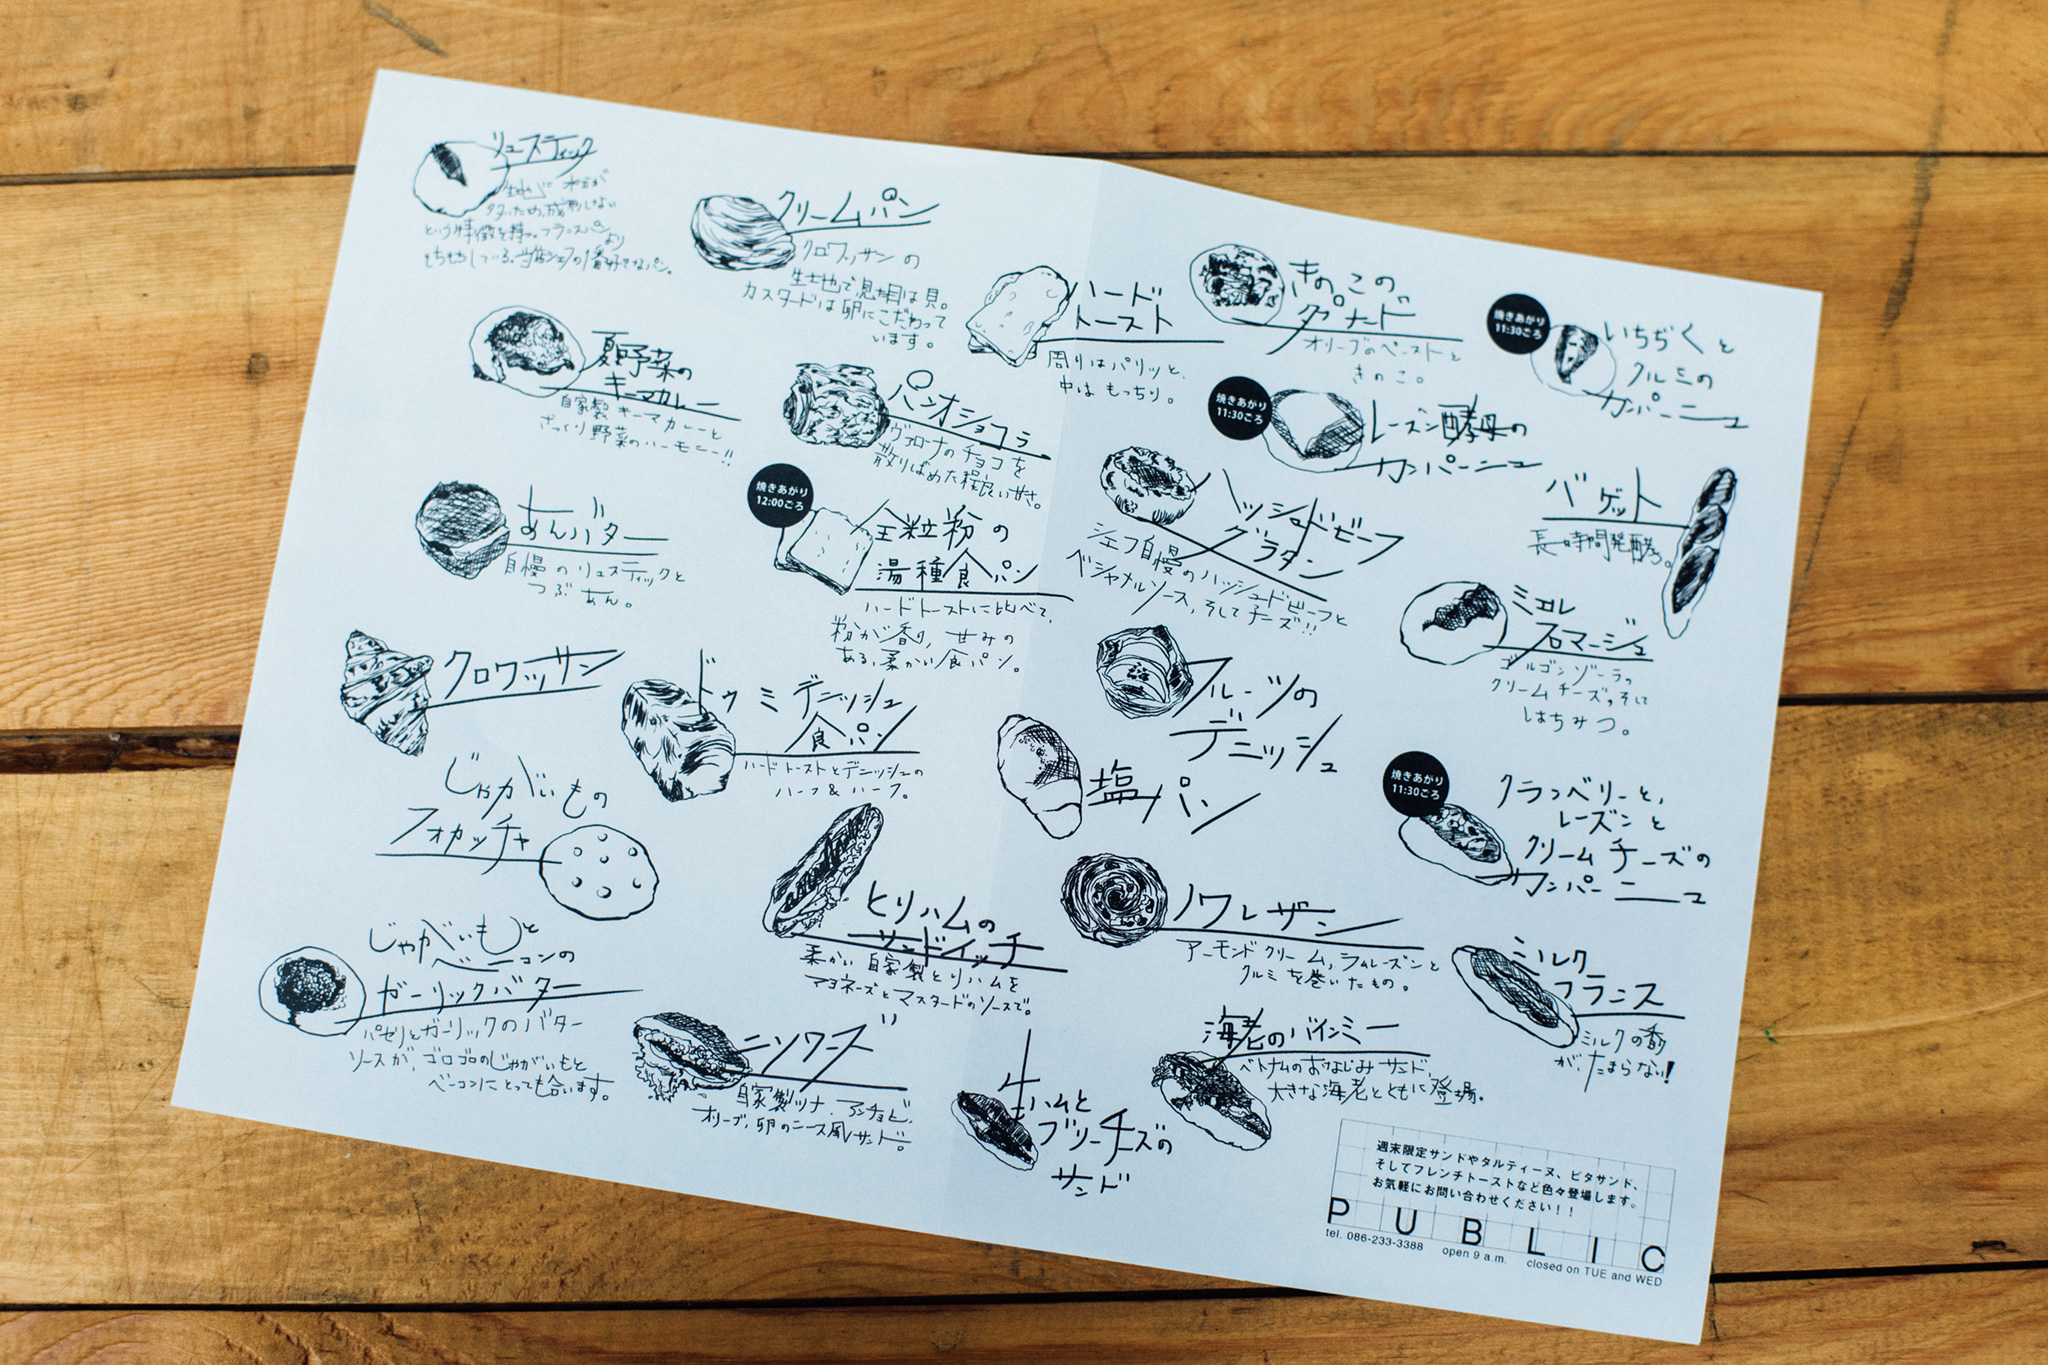 リュスティック
生地に水分が
多いため、成形しない
という特徴を持つ。フランスパンより
もちもちしている。当店シェフの1番好きなパン。
クリームパン
クロワッサンの
生地で見た目は貝。
カスタードは卵にこだわって
います。
ハード
トースト
周りはパリッと、
中はもっちり。
きのこの
タプナード
オリーブのペーストと
きのこ。
焼きあがり
11:30ごろ
いちぢくと
クルミの
カンパーニュ
夏野菜の
キーマカレー
自家製キーマカレーと
ざっくり野菜のハーモニー!!
パンオショコラ
ヴァローナのチョコを
散りばめた程良い甘さ。
焼きあがり
11:30ごろ
レーズン酵母の
カンパーニュ
バゲット
長時間発酵。
あんバター
自慢のリュスティックと
つぶあん。
焼きあがり
12:00ごろ
全粒粉の
湯種食パン
ハードトーストに比べて、
粉が香り、甘みの
ある、柔かい食パン。
ハッシュドビーフ
グラタン
シェフ自慢のハッシュドビーフと
ベシャメルソース、そしてチーズ!!
ミエル
フロマージュ
ゴルゴンゾーラ
クリームチーズ、そして
はちみつ。
クロワッサン
ドゥミデニッシュ
食パン
ハードトーストとデニッシュの
ハーフ&ハーフ。
フルーツの
デニッシュ
塩パン
焼きあがり
11:30ごろ
クランベリーと、
レーズンと
クリームチーズの
カンパーニュ
じゃがいもの
フォカッチャ
とりハムの
サンドイッチ
柔かい自家製とりハムを
マヨネーズとマスタードのソースで。
ノワレザン
アーモンドクリーム、ラムレーズンと
クルミを巻いたもの。
ミルク
フランス
ミルクの香り
が、たまらない!
じゃがいもと
ベーコンの
ガーリックバター
パセリとガーリックのバター
ソースが、ゴロゴロのじゃがいもと
ベーコンにとっても合います。
ニソワーズ
自家製ツナ、アンチョビ、
オリーブ、卵のニース風サンド。
生ハムと
ブリーチーズの
サンド
海老のバインミー
ベトナムのおなじみサンド、
大きな海老とともに登場。
週末限定サンドやタルティーヌ、ピタサンド、
そしてフレンチトーストなど色々登場します。
お気軽にお問い合わせください！！
PUBLIC
tel. 086-233-3388 open 9 a.m. closed on TUE and WED